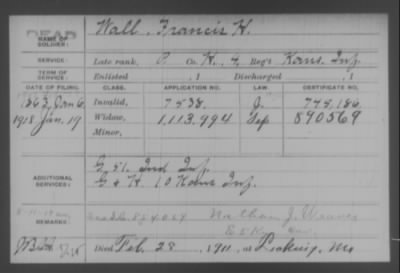 DEAD
NAME OF SOLDIER: Wall, Francis H.
SERVICE: Late rank, P Co. K, 4 Reg't Kans. Inf.
TERM OF SERVICE: Enlisted , 1 Discharged , 1
DATE OF FILING. CLASS. APPLICATION NO. LAW. CERTIFICATE NO.
1863, Jan 6, Invalid, 7538 J. 775,186
1918 Jan. 19 Widow, 1,113,994 Sep 840569
Minor,
ADDITIONAL SERVICES: G 51. Ind Inf.
G & K. 10 Kans Inf.
REMARKS: Nathan J. Weaver
Died Feb. 28, 1911, at Mo